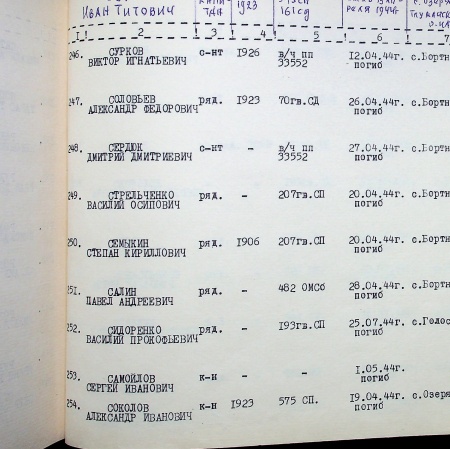 ИВАН ТИТОВИЧ
1923
161сд
I 2 3 4 5 6 7
246. СУРКОВ с-нт I926 в/ч пп I2.04.44г. с.Бортн
ВИКТОР ИГНАТЬЕВИЧ 33552 погиб
247. СОЛОВЬЕВ ряд. I923 70гв.СД 26.04.44г. с.Бортн
АЛЕКСАНДР ФЕДОРОВИЧ погиб
248. СЕРДЮК с-нт - в/ч пп 27.04.44г. с.Бортн
ДМИТРИЙ ДМИТРИЕВИЧ 33552 погиб
249. СТРЕЛЬЧЕНКО ряд. - 207гв.СП 20.04.44г. с.Бортн
ВАСИЛИЙ ОСИПОВИЧ погиб
250. СЕМЫКИН ряд. I906 207гв.СП 20.04.44г. с.Бортн
СТЕПАН КИРИЛЛОВИЧ погиб
251. САЛИН ряд. - 482 ОМСб 28.04.44г. с.Бортн
ПАВЕЛ АНДРЕЕВИЧ погиб
252. СИДОРЕНКО ряд. - I93гв.СП 25.07.44г. с.Голос
ВАСИЛИЙ ПРОКОФЬЕВИЧ погиб
253. САМОЙЛОВ к-н - - I.05.44г.
СЕРГЕЙ ИВАНОВИЧ погиб
254. СОКОЛОВ к-н I923 575 СП. I9.04.44г. с.Озеря
АЛЕКСАНДР ИВАНОВИЧ погиб